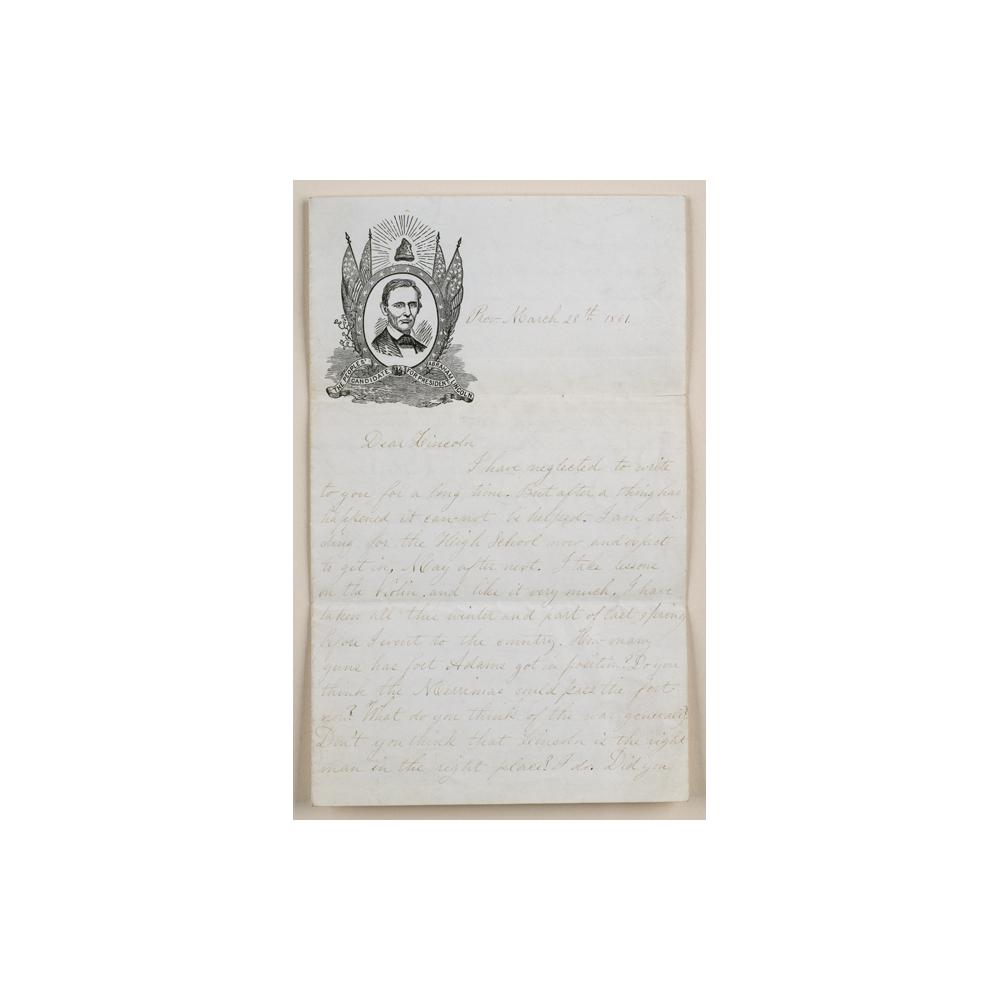 THE PEOPLES' CANDIDATE FOR PRESIDENT ABRAHAM LINCOLN
Prov March 28th 1861.
Dear Lincoln
I have neglected to write
to you for a long time. But after a thing has
happened it can not be helped. I am stu-
ding for the High School now and expect
to get in, May after next. I take lessons
on the Violin and like it very much. I have
taken all this winter and part of last spring
before I went to the country. How many
guns has fort Adams got in position? Do you
think the Merrimac could pass the fort
now? What do you think of the war generaly?
Don't you think that Lincoln is the right
man in the right place? I do. Did you